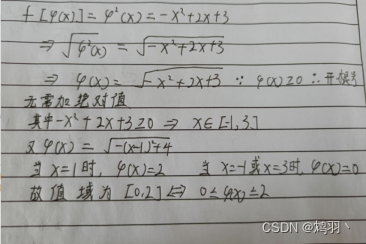 f[φ(x)] = φ²(x) = -x²+2x+3
⇒ √φ²(x) = √-x²+2x+3
⇒ φ(x) = √-x²+2x+3 ∵ φ(x)≥0 ∴开根号
无需加绝对值
其中-x²+2x+3≥0 ⇒ x∈[-1,3]
又φ(x) = √-(x-1)²+4
当x=1时, φ(x)=2 当x=-1或x=3时, φ(x)=0
故值域为[0,2] ⇔ 0≤φ(x)≤2
CSDN @鸩羽丶